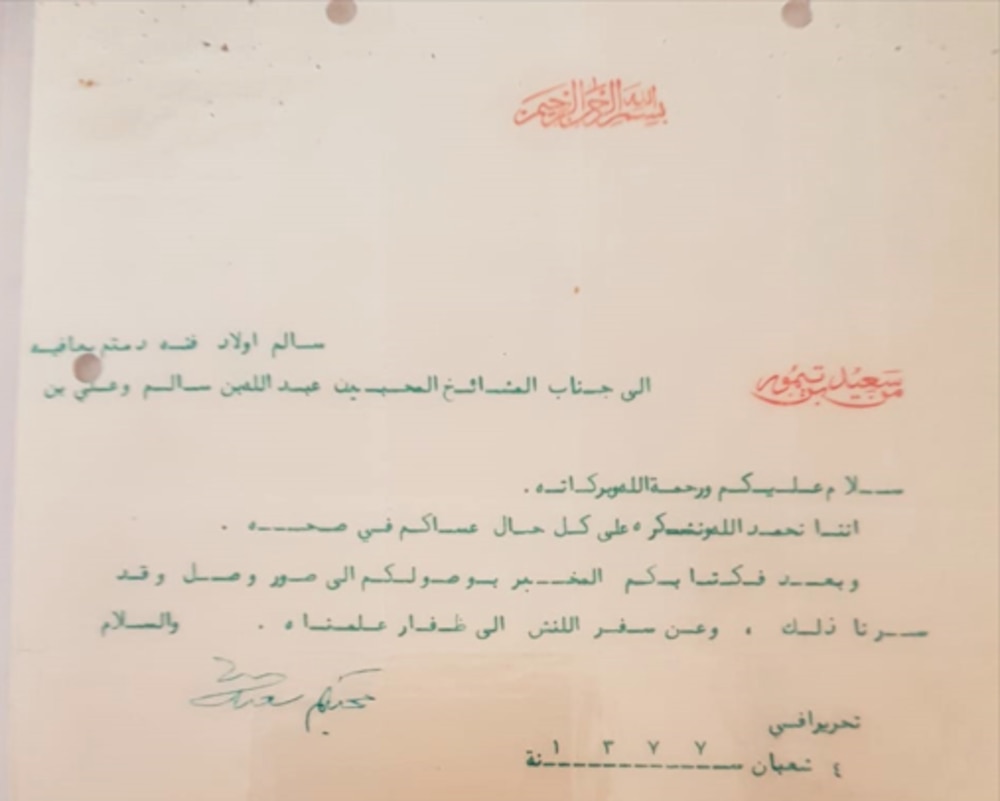 بسم الله الرحمن الرحيم
من سعيد بن تيمور
الى جناب المشائخ المحبين عبد الله بن سالم وعلي بن
سالم اولاد فنه دمتم بعافيه
سلام عليكم ورحمة الله وبركاته .
اننا نحمد الله ونشكره على كل حال عساكم في صحه .
وبعد فكتابكم المخبر بوصولكم الى صور وصل وقد
سرنا ذلك ، وعن سفر اللنش الى ظفار علمناه . والسلام
محبكم سعيد
تحريرا في
٤ شعبان سنة ١٣٧٧